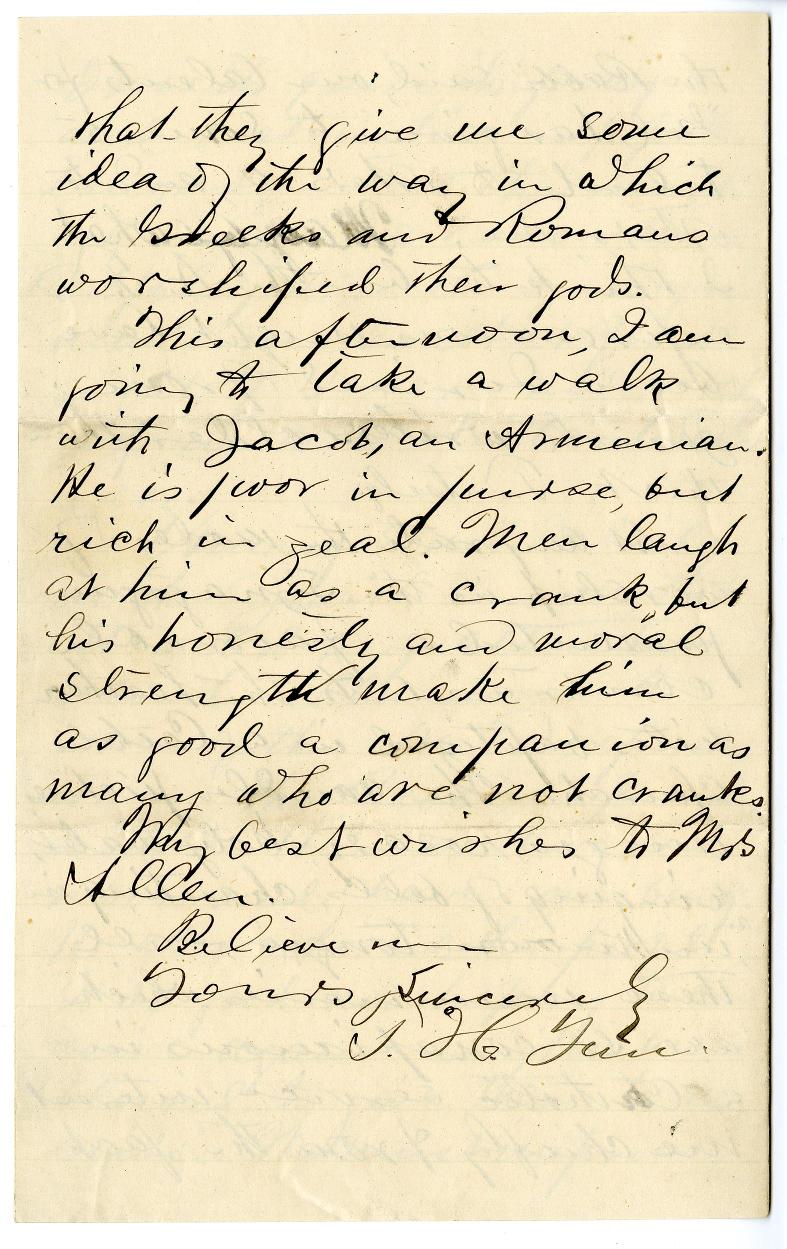 that they give me some
idea of the way in which
the Greeks and Romans
worshiped their gods.
This afternoon, I am
going to take a walk
with Jacob, an Armenian.
He is poor in purse, but
rich in zeal. Men laugh
at him as a crank, but
his honesty and moral
strength make him
as good a companion as
many who are not cranks.
My best wishes to Mrs
Allen.
Believe me
Yours Sincerely
T. H. Yun.